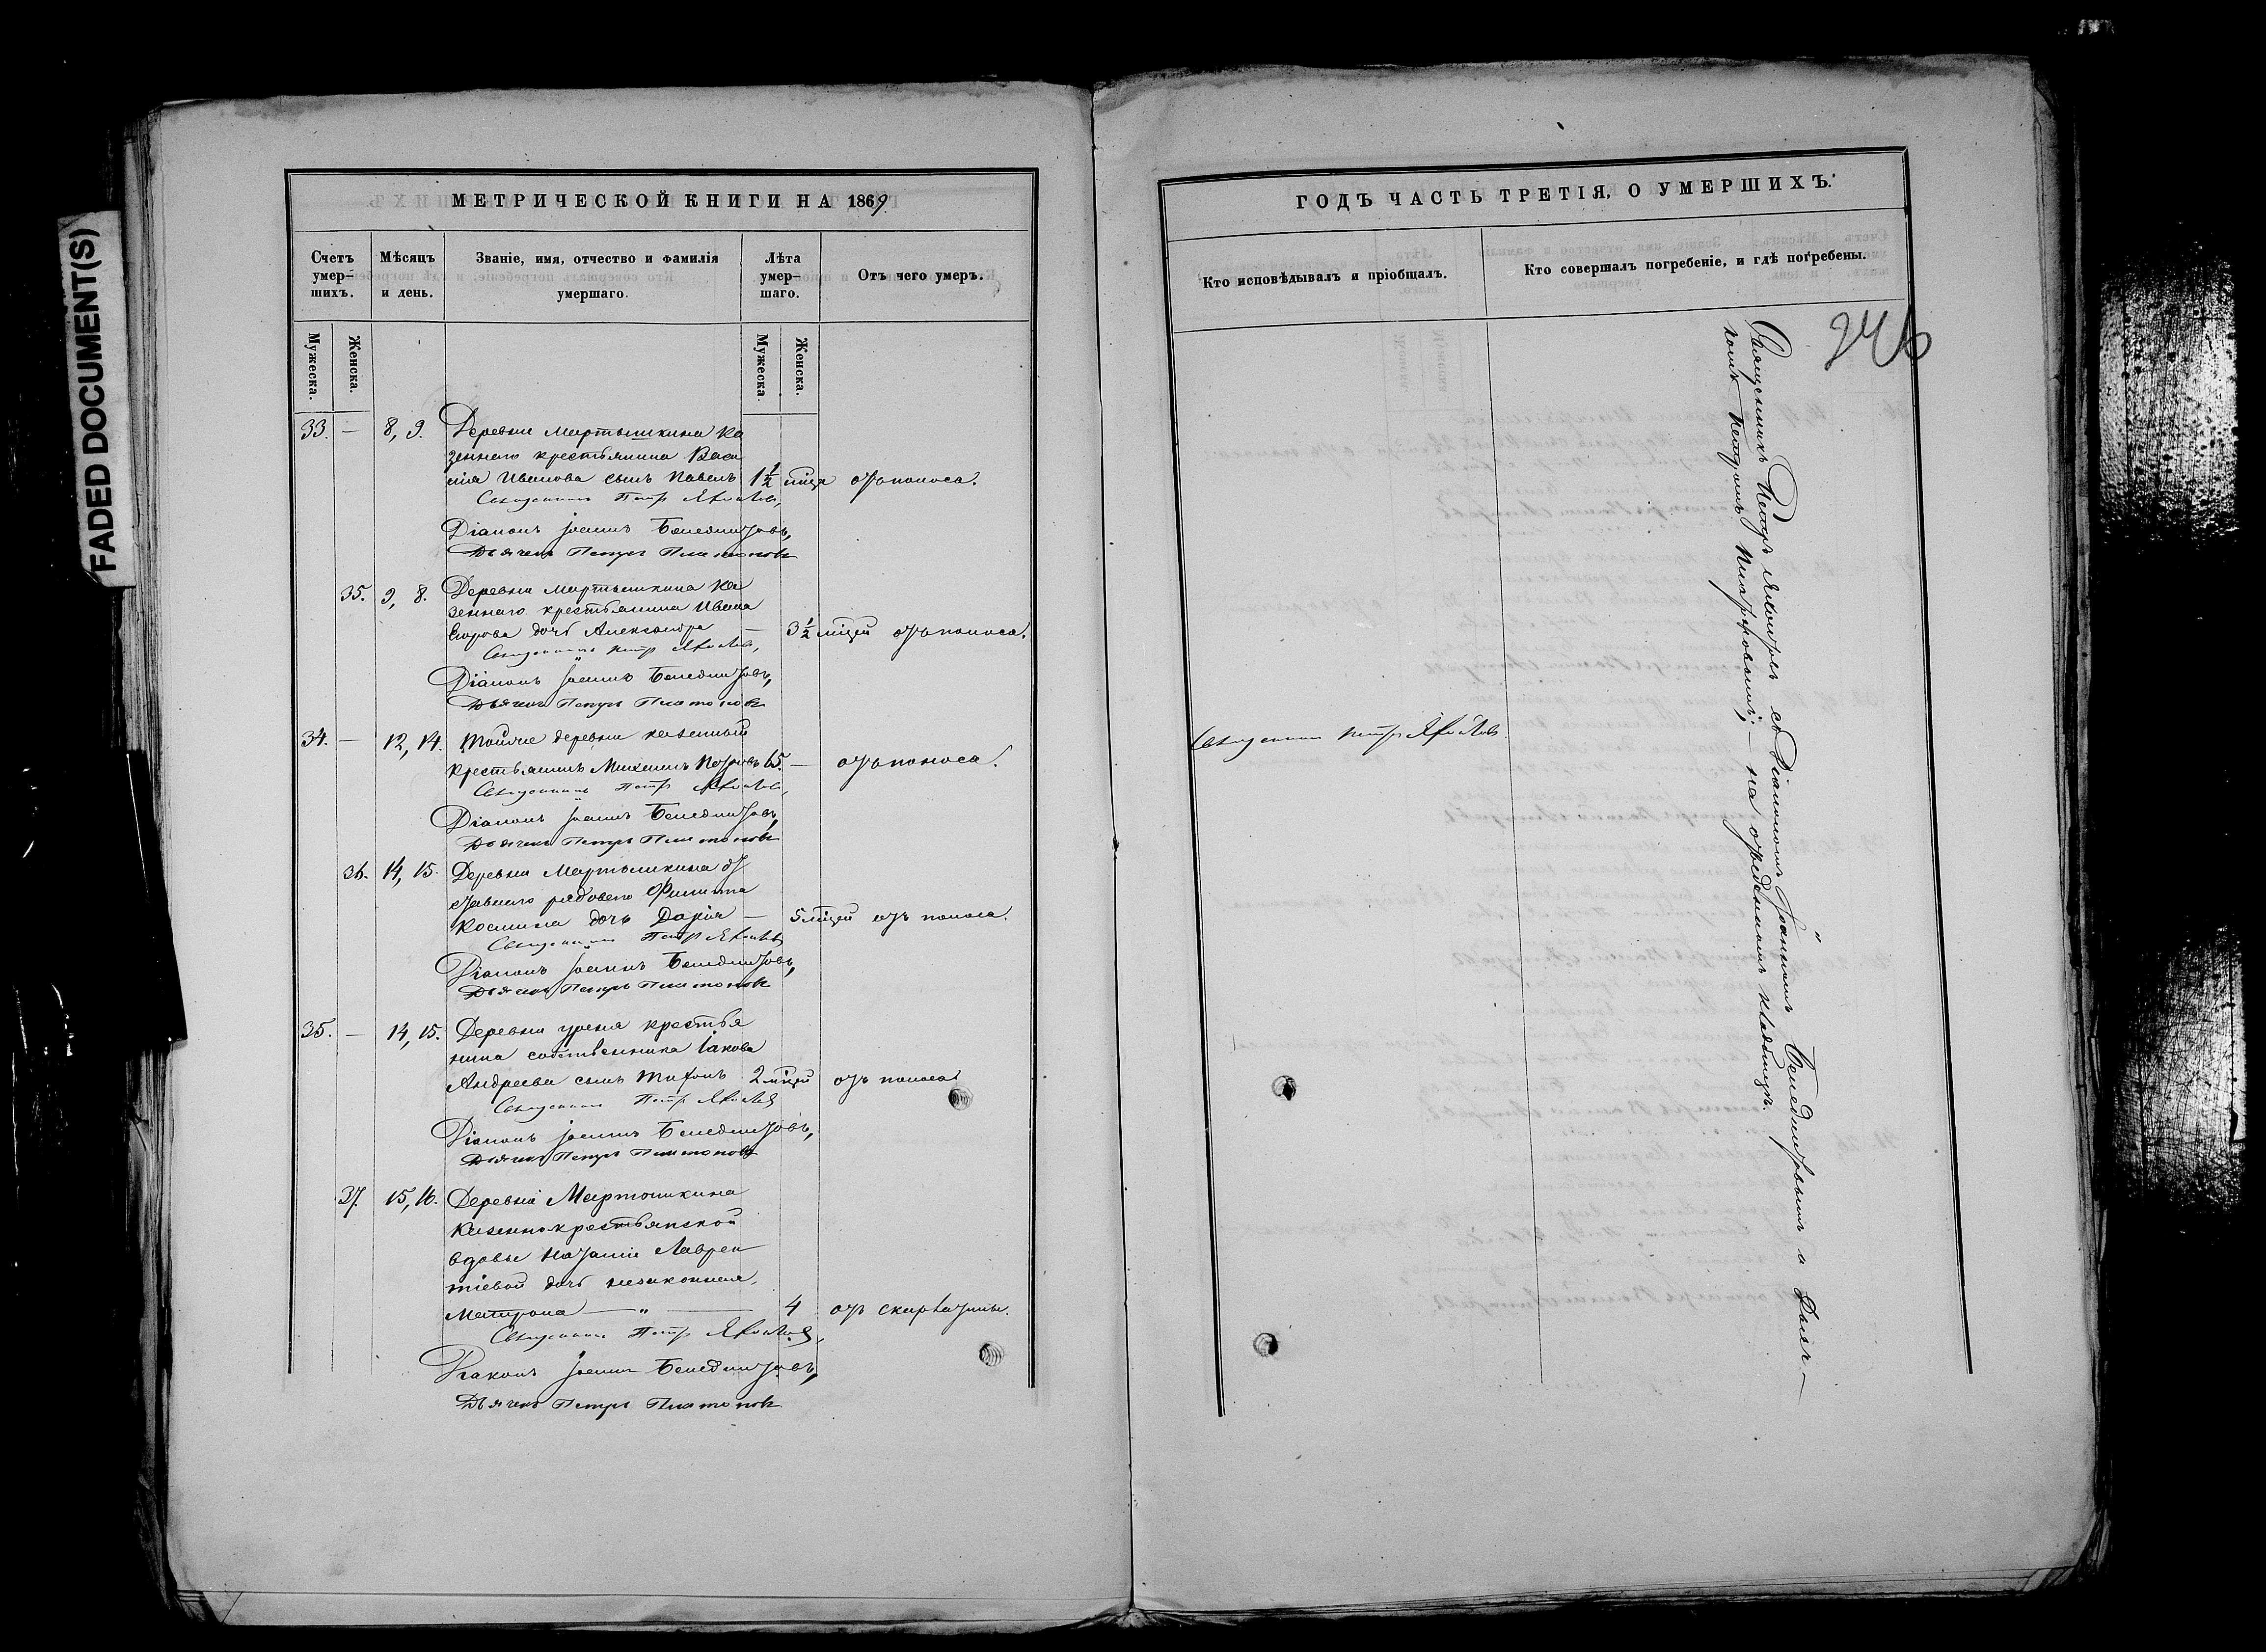 FADED DOCUMENT(S)
МЕТРИЧЕСКОЙ КНИГИ НА 1869
Счетъ умер-шихъ.
Мѣсяцъ и день.
Званіе, имя, отчество и фамилія умершаго.
Лѣта умер-шаго.
Отъ чего умеръ.
Мужеска.
Женска.
Мужеска.
Женска.
33. — 8, 9. Деревни Мартышкина ка
зеннаго крестьянина Васи
лія Иванова сынъ Павелъ 1½ мѣсця отъ поноса.
Священникъ Петръ
Діаконъ Іоаннъ Бенедиктовъ,
Дьячекъ Петръ Платоновъ
35. 9, 8. Деревни Мартышкина ка
зеннаго крестьянина Ивана
Егорова дочь Александра — 3½ мѣцей отъ поноса.
Священникъ Петръ
Діаконъ Іоаннъ Бенедиктовъ,
Дьячекъ Петръ Платоновъ
34. — 12, 14. деревни казенный
крестьянинъ Михаилъ Петровъ 65. — отъ поноса.
Священникъ Петръ
Діаконъ Іоаннъ Бенедиктовъ,
Дьячекъ Петръ Платоновъ
36. 14, 15. Деревни Мартышкина от
ставнаго рядоваго Филиппа
Космина дочь Дарія — 5 мѣцей отъ поноса.
Священникъ Петръ
Діаконъ Іоаннъ Бенедиктовъ,
Дьячекъ Петръ Платоновъ
35. — 14, 15. Деревни крестья
нина собственника Іакова
Андреева сынъ Тихонъ 2 мѣцей отъ поноса
Священникъ Петръ
Діаконъ Іоаннъ Бенедиктовъ,
Дьячекъ Петръ Платоновъ
37. 15, 16. Деревни Мартышкина
казенно-крестьянской
вдовы Наталіи Лаврен
тіевой дочь незаконная,
Матрона — " — 4 отъ скарлатины.
Священникъ Петръ
Діаконъ Іоаннъ Бенедиктовъ,
Дьячекъ Петръ Платоновъ
ГОДЪ ЧАСТЬ ТРЕТІЯ, О УМЕРШИХЪ.
Кто исповѣдывалъ и пріобщалъ.
Кто совершалъ погребеніе, и гдѣ погребены.
Священникъ Петръ
Священникъ Петръ съ Діакономъ Іоанномъ Бенедиктовымъ и Дьяч-
комъ Петромъ Платоновымъ; — на отведенномъ кладбищѣ.